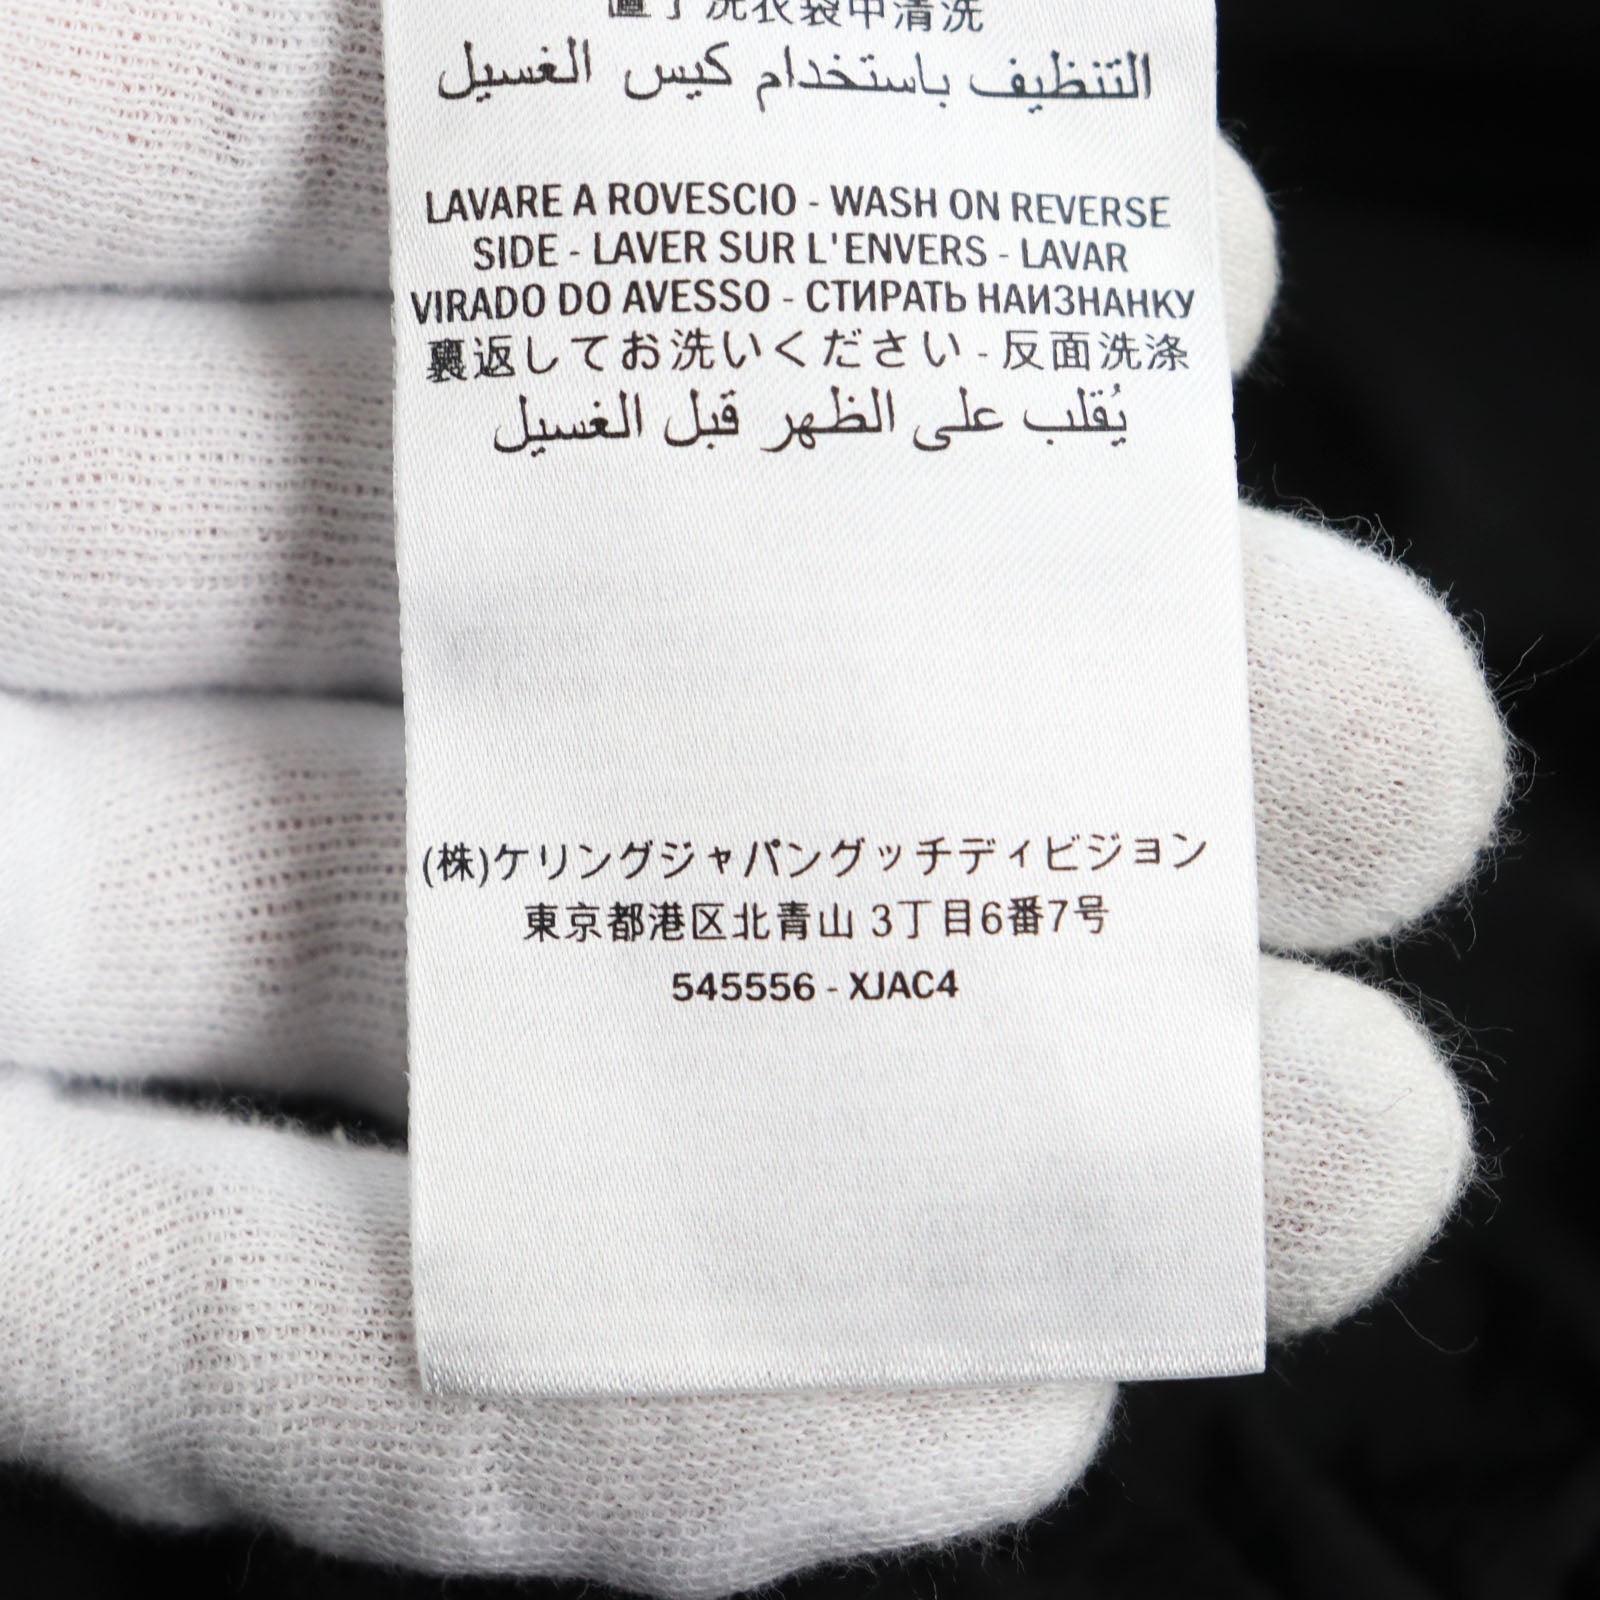 置于洗衣袋中清洗
التنظيف باستخدام كيس الغسيل
LAVARE A ROVESCIO - WASH ON REVERSE
SIDE - LAVER SUR L'ENVERS - LAVAR
VIRADO DO AVESSO - СТИРАТЬ НАИЗНАНКУ
裏返してお洗いください - 反面洗涤
يُقلب على الظهر قبل الغسيل
(株)ケリングジャパングッチディビジョン
東京都港区北青山 3丁目6番7号
545556 - XJAC4